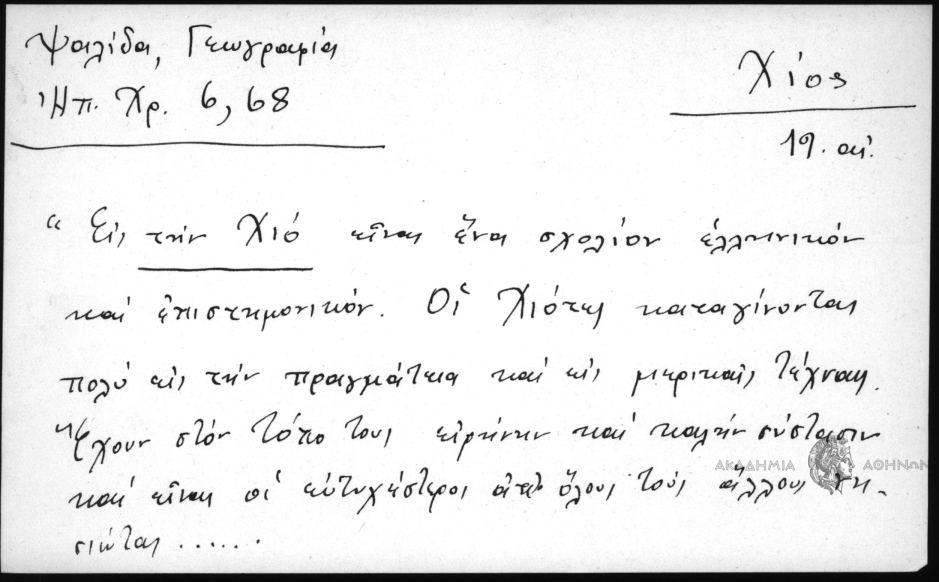 Ψαλίδα, Γεωγραφία
Ἠπ. Χρ. 6, 68
Χίος
19. αἰ.
“ Εἰς τὴν Χιό εἶναι ἕνα σχολίον ἑλληνικόν
καί ἐπιστημονικόν. Οἱ Χιότες καταγίνονται
πολύ εἰς τὴν πραγμάτεια καί εἰς μερικαίς τέχναις.
Ἔχουν στόν τόπο τους εἰρήνην καί καλήν σύστασιν
καί εἶναι οἱ εὐτυχέστεροι ἀπό ὅλους τούς ἄλλους νη-
σιώτας ......
ΑΚΑΔΗΜΙΑ ΑΘΗΝΩΝ